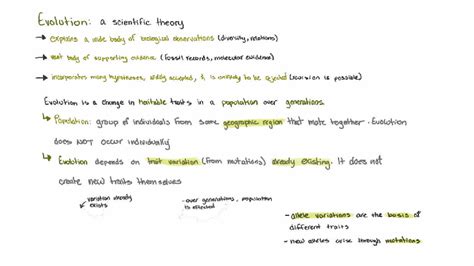 Evolution: a scientific theory
→ explains a wide body of biological observations (diversity, relations)
→ vast body of supporting evidence (fossil records, molecular evidence)
→ incorporates many hypotheses, widely accepted, & is unlikely to be rejected (revision is possible)
Evolution is a change in heritable traits in a population over generations.
↳ Population: group of individuals from same geographic region that mate together. Evolution
does NOT occur individually
↳ Evolution depends on trait variation (from mutations) already existing. It does not
create new traits themselves
variation already
exists
- over generations, population
is affected
- allele variations are the basis of
different traits
- new alleles arise through mutations